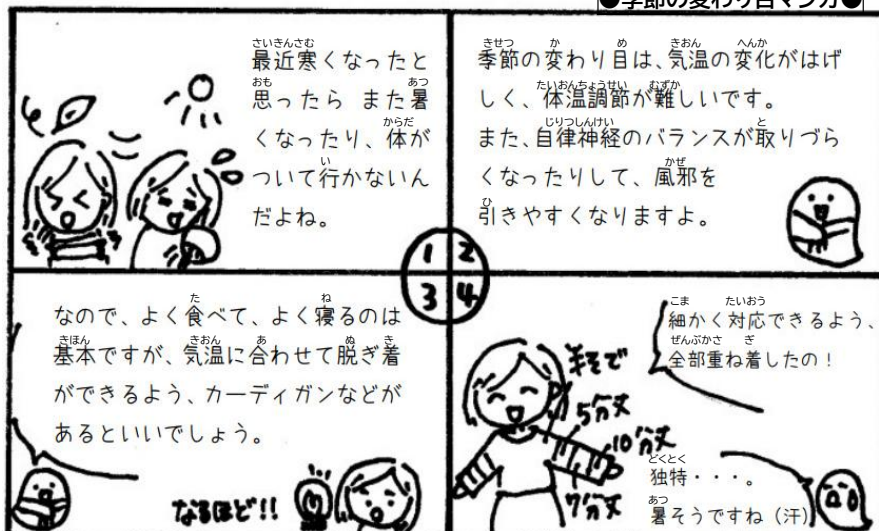 ●季節の変わり目マンガ●
最近寒くなったと
思ったら また暑
くなったり、体が
ついて行かないん
だよね。
季節の変わり目は、気温の変化がはげ
しく、体温調節が難しいです。
また、自律神経のバランスが取りづら
くなったりして、風邪を
引きやすくなりますよ。
1 2
3 4
なので、よく食べて、よく寝るのは
基本ですが、気温に合わせて脱ぎ着
ができるよう、カーディガンなどが
あるといいでしょう。
なるほど!!
細かく対応できるよう、
全部重ね着したの！
半そで
5分丈
10分丈
7分丈
独特・・・。
暑そうですね（汗）